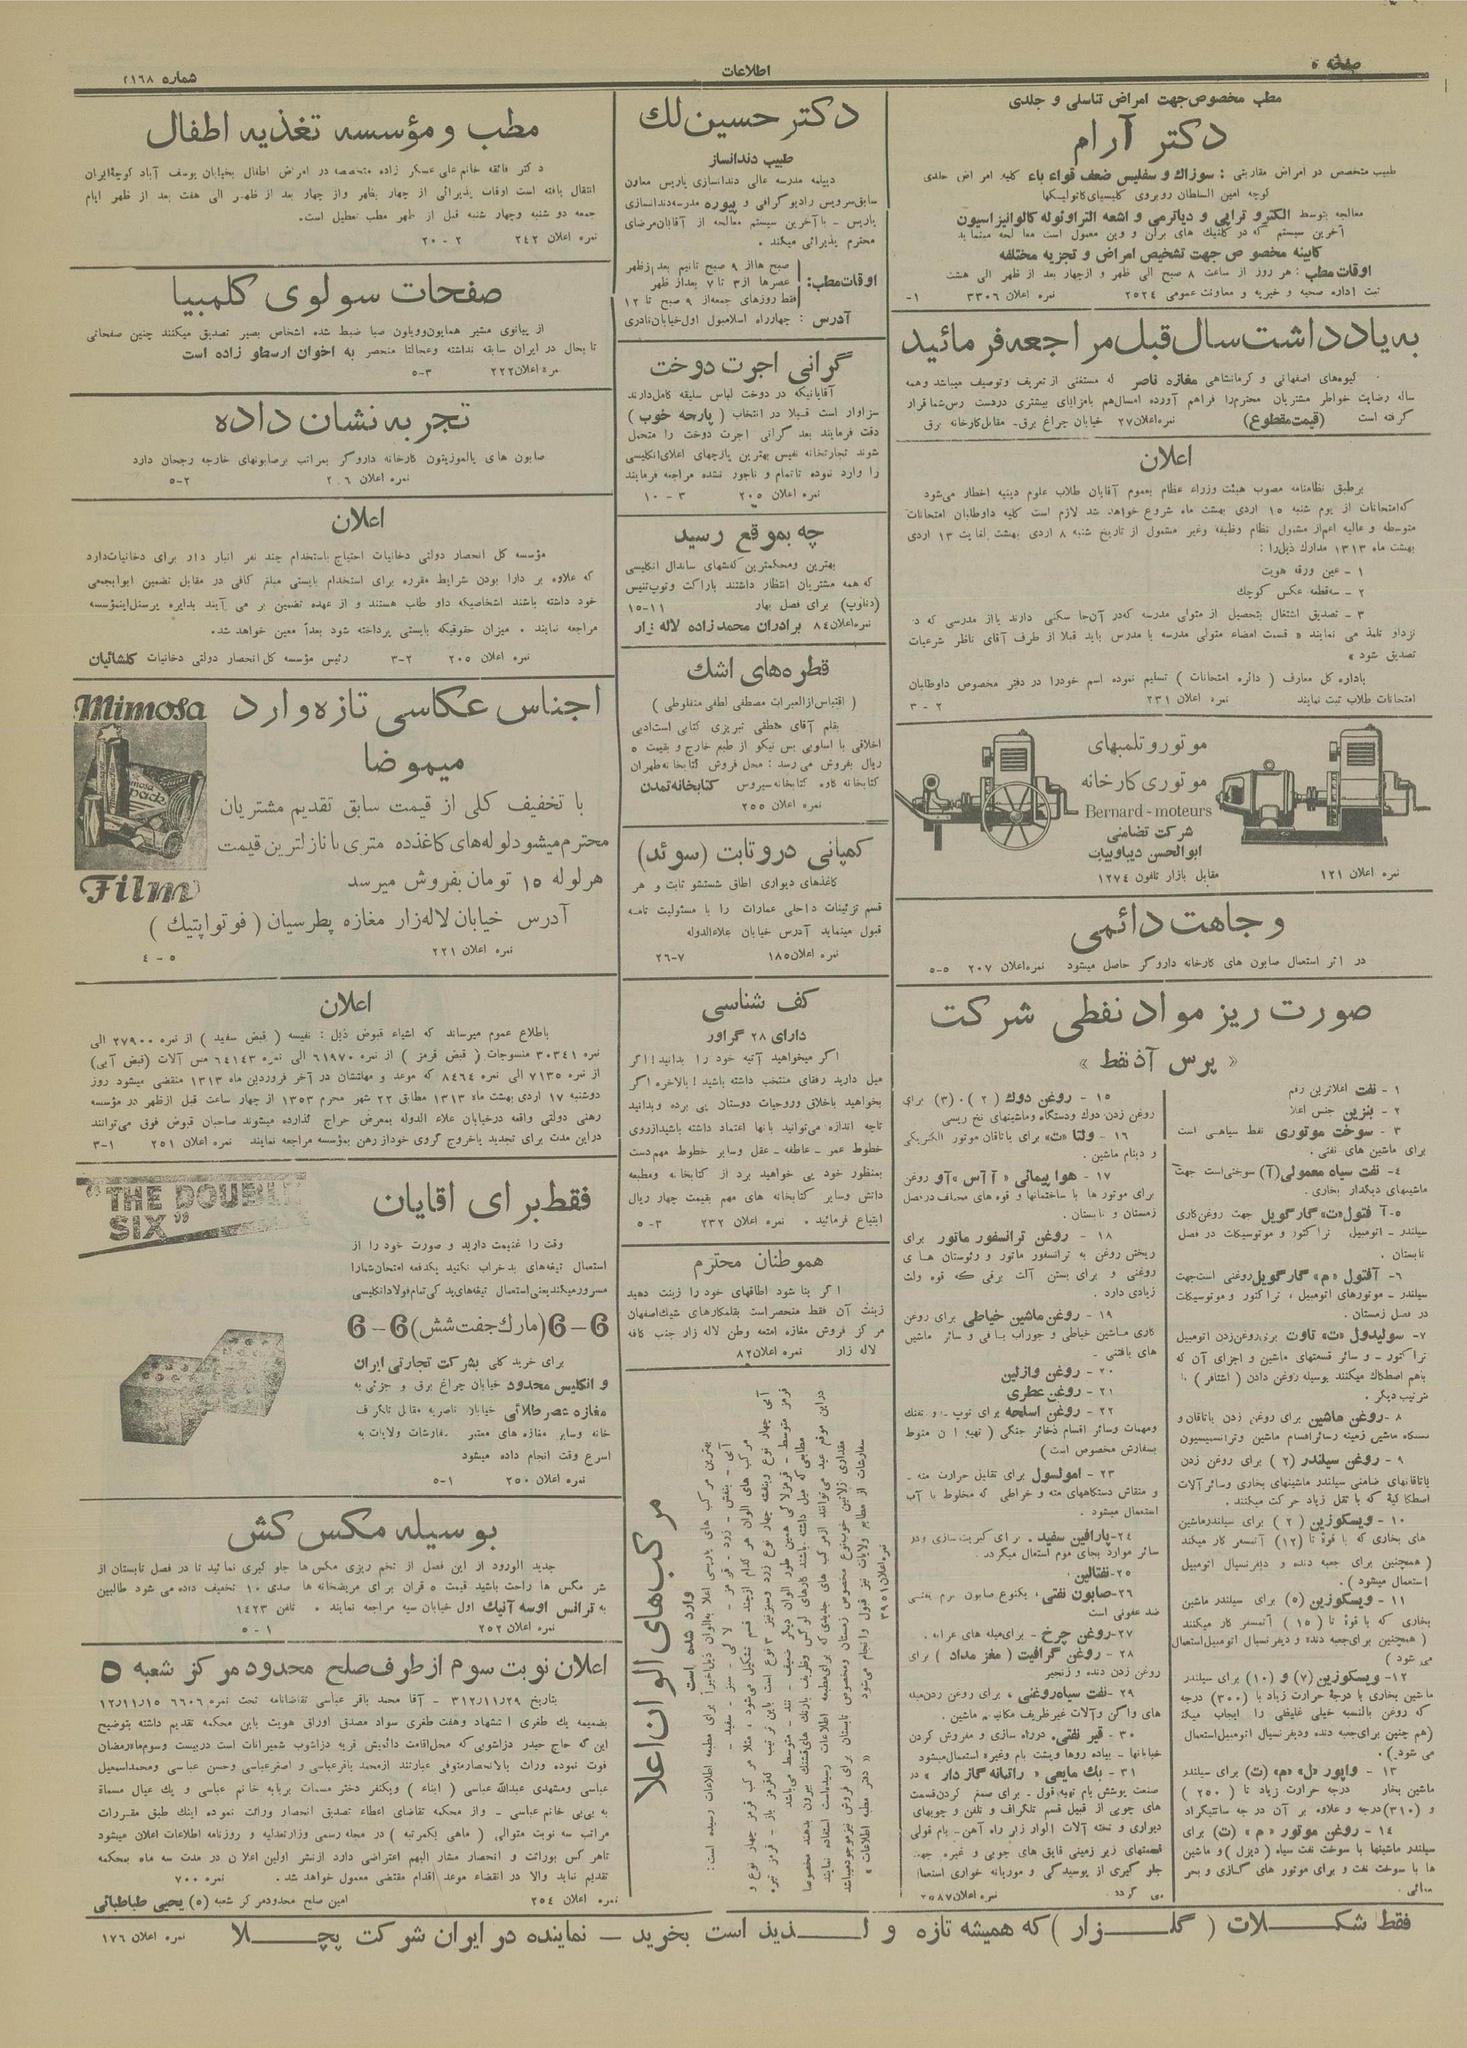 صفحه ۵
اطلاعات
شماره ۲۱۶۸
مطب مخصوص جهت امراض تناسلی و جلدی
دکتر آرام
طبیب متخصص در امراض مقاربتی : سوزاك و سفلیس ضعف قواء باء کلیه امراض جلدی
کوچه امین السلطان روبروی کلیسیای کاتولیسکها
معالجه بتوسط الکترو تراپی و دیاترمی و اشعه التراوئوله کالوانیزاسیون
آخرین سیستم که در کلنیك های برلن و وین معمول است معالجه مینماید
کابینه مخصوص جهت تشخیص امراض و تجزیه مختلفه
اوقات مطب : هر روز از ساعت ۸ صبح الی ظهر و از چهار بعد از ظهر الی هشت
ثبت اداره صحیه و خیریه و معاونت عمومی ۲۵۲۴ نمره اعلان ۳۳۰۶ ۱-
به یادداشت سال قبل مراجعه فرمائید
گیوه‌های اصفهانی و کرمانشاهی مغازه ناصر که مستغنی از تعریف وتوصیف میباشد وهمه
ساله رضایت خواطر مشتریان محترم را فراهم آورده امسال هم بامزایای بیشتری در دست رس شما قرار
گرفته است (قیمت مقطوع) نمره اعلان ۲۷ خیابان چراغ برق- مقابل کارخانه برق
اعلان
برطبق نظامنامه مصوب هیئت وزراء عظام بعموم آقایان طلاب علوم دینیه اخطار می‌شود
که امتحانات از یوم شنبه ۱۵ اردی بهشت ماه شروع خواهد شد لازم است کلیه داوطلبان امتحانات
متوسطه و عالیه اعم از مشمول نظام وظیفه وغیر مشمول از تاریخ شنبه ۸ اردی بهشت لغایت ۱۳ اردی
بهشت ماه ۱۳۱۳ مدارك ذیل را :
۱ - عین ورقه هویت
۲ - سه قطعه عکس کوچك
۳ - تصدیق اشتغال بتحصیل از متولی مدرسه که در آن جا سکنی دارند یا از مدرسی که در
نزد او تلمذ می نمایند « قسمت امضاء متولی مدرسه یا مدرس باید قبلا از طرف آقای ناظر شرعیات
تصدیق شود »
باداره کل معارف ( دائره امتحانات ) تسلیم نموده اسم خود را در دفتر مخصوص داوطلبان
امتحانات طلاب ثبت نمایند نمره اعلان ۲۳۱ ۲ - ۳
موتور و تلمبهای
موتوری کارخانه
Bernard - moteurs
شرکت تضامنی
ابوالحسن دیبا وبیات
مقابل بازار تلفون ۱۲۷۴
نمره اعلان ۱۲۱
وجاهت دائمی
در اثر استعمال صابون های کارخانه داروگر حاصل میشود نمره اعلان ۲۰۷ ۵-۵
صورت ریز مواد نفطی شرکت
« پرس آذ نفط »
۱ - نفت اعلاترین رقم
۲ - بنزین جنس اعلا
۳ - سوخت موتوری نفط سیاهی است
برای ماشین های نفتی .
۴- نفت سیاه معمولی (آ) سوختی است جهت
ماشینهای دیگدار بخاری .
۵- آفتول «ت» گارگویل جهت روغن کاری
سیلندر - اتومبیل تراکتور و موتوسیکلت در فصل
تابستان .
۶- آفتول «م» گارگویل روغنی است جهت
سیلندر - موتورهای اتومبیل ، تراکتور و موتوسیکلت
در فصل زمستان .
۷- سولیدول «ت» تاوت برای روغن زدن اتومبیل
تراکتور - و سائر قسمتهای ماشین و اجزای آن که
باهم اصطکاك میکنند بوسیله روغن دادن ( اشتافر )
ترتیب دیگر .
۸ - روغن ماشین برای روغن زدن یاتاقان و
دستگاه ماشین زمینه و سائر اقسام ماشین وترانسمیسیون
۹ - روغن سیلندر (۲) برای روغن زدن
یاتاقانهای ضامنی سیلندر ماشینهای بخاری وسائر آلات
اصطکاکیه که با ثقل زیاد حرکت میکنند .
۱۰ - ویسکوزین (۲) برای سیلندر ماشین
های بخاری که با قوۀ تا (۱۲) آتمسفر کار میکند
( همچنین برای جعبه دنده و دیفرنسیال اتومبیل
استعمال میشود ) .
۱۱ - ویسکوزین (۵) برای سیلندر ماشین
بخاری که با قوۀ تا (۱۵) آتمسفر کار میکنند
( همچنین برای جعبه دنده و دیفرنسیال اتومبیل استعمال
می شود )
۱۲- ویسکوزین (۷) و (۱۰) برای سیلندر
ماشین بخاری با درجۀ حرارت زیاد با (۳۰۰) درجه
که روغن بالنسبه خیلی غلیظی را ایجاب میکند
(هم چنین برای جعبه دنده ودیفرنسیال اتومبیل استعمال
می شود).
۱۳ - واپور «ل» «م» (ت) برای سیلندر
ماشین بخار درجه حرارت زیاد تا (۲۵۰)
و (۳۱۰) درجه و علاوه بر آن درجه سانتیگراد
۱۴ - روغن موتور « م » (ت) برای
سیلندر ماشینها با سوخت نفت سیاه (دیزل) و ماشین
ها با سوخت نفت و برای موتور های گازی و بحر
پیمائی .
۱۵ - روغن دوك (۲) ۰ (۳) برای
روغن زدن دوك ودستگاه وماشینهای نخ ریسی
۱۶ - ولتا «ت» برای یاتاقان موتور الکتریکی
و دینام ماشین .
۱۷ - هواپیمائی « آ آس » آو روغن
برای موتور ها با ساختمانها و قوه های مختلف در فصل
زمستان و تابستان .
۱۸ - روغن ترانسفور ماتور برای
ریختن روغن به ترانسفور ماتور و رئوستان های
روغنی و برای بستن آلت برقی که قوه ولت
زیادی دارد .
۱۹ - روغن ماشین خیاطی برای روغن
کاری ماشین خیاطی و جوراب بافی و سائر ماشین
های بافتنی .
۲۰ - روغن وازلین
۲۱ - روغن عطری
۲۲ - روغن اسلحه برای توپ - و تفنك
ومهمات وسائر اقسام ذخائر جنگی ( تهیه آن منوط
بسفارش مخصوص است )
۲۳ - امولسول برای تقلیل حرارت مته -
و منقاش دستگاههای مته و خراطی که مخلوط با آب
استعمال میشود .
۲۴- پارافین سفید . برای کبریت سازی ودر
سائر موارد بجای موم استعمال میگردد .
۲۵- نفتالین .
۲۶- صابون نفتی ، یکنوع صابون نرم نفتی
ضد عفونی است
۲۷- روغن چرخ - برای میله های عرابه .
۲۸ - روغن گرافیت ( مغز مداد ) برای
روغن زدن دنده و زنجیر
۲۹ - نفت سیاه روغنی ، برای روغن زدن میله
های واگن وآلات غیر ظریف مکانیه ماشین .
۳۰ - قیر نفتی . دوراه سازی و مفروش کردن
خیابانها - پیاده روها وپشت بام وغیره استعمال میشود
۳۱ - بك مایعی « راتبانه گاز دار » در
صنعت پوشش بام تهیه قول - برای صمغ کردن قسمت
های چوبی از قبیل قسم تلگراف و تلفن و چوبهای
دیواری و تخته آلات الوار زیر راه آهن - بام قولی
قسمتهای زیر زمینی قایق های چوبی و غیره جهت
جلو گیری از پوسیدگی و موریانه خواری استعمال
می گردد . نمره اعلان ۲۵۸۷
دکتر حسین لك
طبیب دندانساز
دیپلمه مدرسه عالی دندانسازی پاریس معاون
سابق سرویس رادیوگرافی و پیوره مدرسه دندانسازی
پاریس - با آخرین سیستم معالجه از آقایان مرضای
محترم پذیرائی میکند .
اوقات مطب:
صبح ها از ۹ صبح تا نیم بعد از ظهر
عصرها از ۳ تا ۷ بعد از ظهر
فقط روزهای جمعه از ۹ صبح تا ۱۲
آدرس : چهارراه اسلامبول اول خیابان نادری
گرانی اجرت دوخت
آقایانیکه در دوخت لباس سلیقه کامل دارند
سزاوار است قبلا در انتخاب ( پارچه خوب )
دقت فرمایند بعد گرانی اجرت دوخت را متحمل
شوند تجارتخانه نفیس بهترین پارچهای اعلای انگلیسی
را وارد نموده تا تمام و ناجور نشده مراجعه فرمایند
نمره اعلان ۲۰۵ ۳ - ۱۰
چه بموقع رسید
بهترین ومحکمترین کفشهای ساندال انگلیسی
که همه مشتریان انتظار داشتند با راکت وتوپ تنیس
(دناوپ) برای فصل بهار ۱۱-۱۵
نمره اعلان ۸۴ برادران محمدزاده لاله زار
قطره‌های اشك
( اقتباس از العبرات مصطفی لطفی منفلوطی )
بقلم آقای هطفی تبریزی کتابی است ادبی
اخلاقی با اسلوبی بس نیکو از طبع خارج و بقیمت ۵
ریال بفروش می رسد : محل فروش کتابخانه طهران
کتابخانه کاوه کتابخانه سیروس کتابخانه تمدن
نمره اعلان ۲۵۵
کمپانی دروتابت (سوئد)
کاغذهای دیواری اطاق شستشو ثابت و هر
قسم تزئینات داخلی عمارات را با مسئولیت تامه
قبول مینماید آدرس خیابان علاءالدوله
نمره اعلان ۱۸۵ ۷-۲۶
کف شناسی
دارای ۲۸ گراور
اگر میخواهید آتیه خود را بدانید ! اگر
میل دارید رفقای منتخب داشته باشید ! بالاخره اگر
بخواهید باخلاق وروحیات دوستان پی برده وبدانید
تاچه اندازه می‌توانید بآنها اعتماد داشته باشید از روی
خطوط عمر - عاطفه - عقل وسایر خطوط مهم دست
بمنظور خود پی خواهید برد از کتابخانه ومطبعه
دانش وسایر کتابخانه های مهم بقیمت چهار ریال
ابتیاع فرمائید . نمره اعلان ۲۳۲ ۳-۵
هموطنان محترم
اگر بنا شود اطاقهای خود را زینت دهید
زینت آن فقط منحصر است بقلمکارهای شیك اصفهان
مرکز فروش مغازه امتعه وطن لاله زار جنب کافه
لاله زار نمره اعلان ۸۲
مرکب‌های الوان اعلا
وارد شده است
بهترین مرکب های پاریسی اعلا بالوان ذیل اخیراً برای مطبعه اطلاعات رسیده است :
آبی - بنفش - زرد - قرمز - لاکی - سبز - سفید -
مرکب های الوان هر کدام از چند قسم تشکیل می‌شود ، مثلا مرکب قرمز چهار نوع و
آبی چهار نوع وبنفشه چهار نوع زرد وسبز نیز ۳ نوع است باین ترتیب که قرمز باز - قرمز تیره
قرمز متوسط - قرمز لاکی همین طور الوان دیگر ضعیف - تند - متوسط می‌باشد
مطابعی که میل داشته باشند کارهای لوکس وظریف با رنك های قشنك بیرون بدهند مخصوصا
در این موقع عید می‌توانند از مرکب های جدیدی که برای مطبعه اطلاعات رسیده است استفاده نمایند
مقداری ژلاتین خوب نوع مخصوص زمستان ومخصوص تابستان برای فروش نیز موجود میباشد
سفارشات از مطابع ولایات نیز قبول و انجام می‌شود « دفتر مطبعه اطلاعات »
نمره اعلان ۳۹۵۱
مطب و مؤسسه تغذیه اطفال
دکتر فائقه خانم علی عسکر زاده متخصصه در امراض اطفال بخیابان یوسف آباد کوچۀ ایران
انتقال یافته است اوقات پذیرائی از چهار بظهر واز چهار بعد از ظهر الی هفت بعد از ظهر ایام
جمعه دو شنبه وچهار شنبه قبل از ظهر مطب تعطیل است.
نمره اعلان ۲۴۲ ۲ - ۲۰
صفحات سولوی کلمبیا
از پیانوی مشیر همایون و ویلون صبا ضبط شده اشخاص بصیر تصدیق میکنند چنین صفحاتی
تا بحال در ایران سابقه نداشته وعجالتا منحصر به اخوان ارسطو زاده است
نمره اعلان ۲۲۲ ۳-۵
تجربه نشان داده
صابون های پالموزیتون کارخانه داروگر بمراتب بر صابونهای خارجه رجحان دارد
نمره اعلان ۲۰۶ ۲-۵
اعلان
مؤسسه کل انحصار دولتی دخانیات احتیاج باستخدام چند نفر انبار دار برای دخانیات دارد
که علاوه بر دارا بودن شرایط مقرره برای استخدام بایستی مبلغ کافی در مقابل تضمین ابوابجمعی
خود داشته باشند اشخاصیکه داوطلب هستند و از عهده تضمین بر می آیند بدایره پرسنل اینمؤسسه
مراجعه نمایند . میزان حقوقیکه بایستی پرداخته شود بعداً معین خواهد شد.
نمره اعلان ۲۰۵ ۲-۳ رئیس مؤسسه کل انحصار دولتی دخانیات گلشائیان
Mimosa
Film
اجناس عکاسی تازه وارد
میموضا
با تخفیف کلی از قیمت سابق تقدیم مشتریان
محترم میشود لوله های کاغذ ده متری با نازلترین قیمت
هر لوله ۱۵ تومان بفروش میرسد
آدرس خیابان لاله زار مغازه پطرسیان ( فوتو اپتیك )
نمره اعلان ۲۲۱ ۵ - ۴
اعلان
باطلاع عموم میرساند که اشیاء قبوض ذیل : نفیسه ( قبض سفید ) از نمره ۲۷۹۰۰ الی
نمره ۳۰۳۴۱ منسوجات ( قبض قرمز ) از نمره ۶۱۹۷۰ الی نمره ۶۴۱۴۳ مس آلات (قبض آبی)
از نمره ۷۱۳۵ الی نمره ۸۴۶۴ که موعد و مهلتشان در آخر فروردین ماه ۱۳۱۳ منقضی میشود روز
دوشنبه ۱۷ اردی بهشت ماه ۱۳۱۳ مطابق ۲۲ شهر محرم ۱۳۵۳ از چهار ساعت قبل از ظهر در مؤسسه
رهنی دولتی واقعه در خیابان علاء الدوله بمعرض حراج گذارده میشوند صاحبان قبوض فوق می‌توانند
در این مدت برای تجدید یا خروج گروی خود از رهن بمؤسسه مراجعه نمایند نمره اعلان ۲۵۱ ۱-۳
“THE DOUBLE
SIX”
فقط برای آقایان
وقت را غنیمت دارید و صورت خود را از
استعمال تیغه‌های بد خراب نکنید یکدفعه امتحان شما را
مسرور میکند یعنی استعمال تیغه‌های یدکی تمام فولاد انگلیسی
6-6 (مارك جفت شش) 6-6
برای خرید کلی بشرکت تجارتی ایران
و انگلیس محدود خیابان چراغ برق و جزئی به
مغازه عصر طلائی خیابان ناصریه مقابل تلگراف
خانه وسایر مغازه های معتبر سفارشات ولایات به
اسرع وقت انجام داده میشود
نمره اعلان ۲۵۰ ۱-۵
بوسیله مگس کش
جدید الورود از این فصل از تخم ریزی مگس ها جلو گیری نمائید تا در فصل تابستان از
شر مگس ها راحت باشید قیمت ۵ قران برای مریضخانه ها صدی ۱۰ تخفیف داده می شود طالبین
به ترانس اوسه آتیك اول خیابان سپه مراجعه نمایند . تلفن ۱۴۲۳
نمره اعلان ۲۵۲ ۱ - ۵
اعلان نوبت سوم از طرف صلح محدود مرکز شعبه ۵
بتاریخ ۳۱۲/۱۱/۲۹ - آقا محمد باقر عباسی تقاضانامه تحت نمره ۶۶۰۶ ۱۲/۱۱/۱۵
بضمیمه یك طغری استشهاد وهفت طغری سواد مصدق اوراق هویت باین محکمه تقدیم داشته بتوضیح
این که حاج حیدر دزاشوبی که محل اقامت دائمیش قریه دزاشوب شمیرانات است در بیست وسوم ماه رمضان
فوت نموده وراث بالانحصار متوفی عبارتند از محمد باقر عباسی و اصغر عباسی وحسن عباسی ومحمد اسمعیل
عباسی ومشهدی عبدالله عباسی ( ابناء ) ویکنفر دختر مسمات بربابه خانم عباسی و یك عیال مسماة
به بی بی خانم عباسی - و از محکمه تقاضای اعطاء تصدیق انحصار وراثت نموده اینك طبق مقررات
مراتب سه نوبت متوالی ( ماهی یکمرتبه ) در مجله رسمی وزارت عدلیه و روزنامه اطلاعات اعلان میشود
تا هر کس بوراثت و انحصار مشار الیهم اعتراضی دارد از نشر اولین اعلان در مدت سه ماه بمحکمه
تقدیم نماید والا در انقضاء موعد اقدام مقتضی معمول خواهد شد . نمره ۷۰۰
نمره اعلان ۲۵۴ امین صلح محدود مرکز شعبه (۵) یحیی طباطبائی
فقط شکلات ( گلزار ) که همیشه تازه و لذیذ است بخرید - نماینده در ایران شرکت پچلا نمره اعلان ۱۷۶